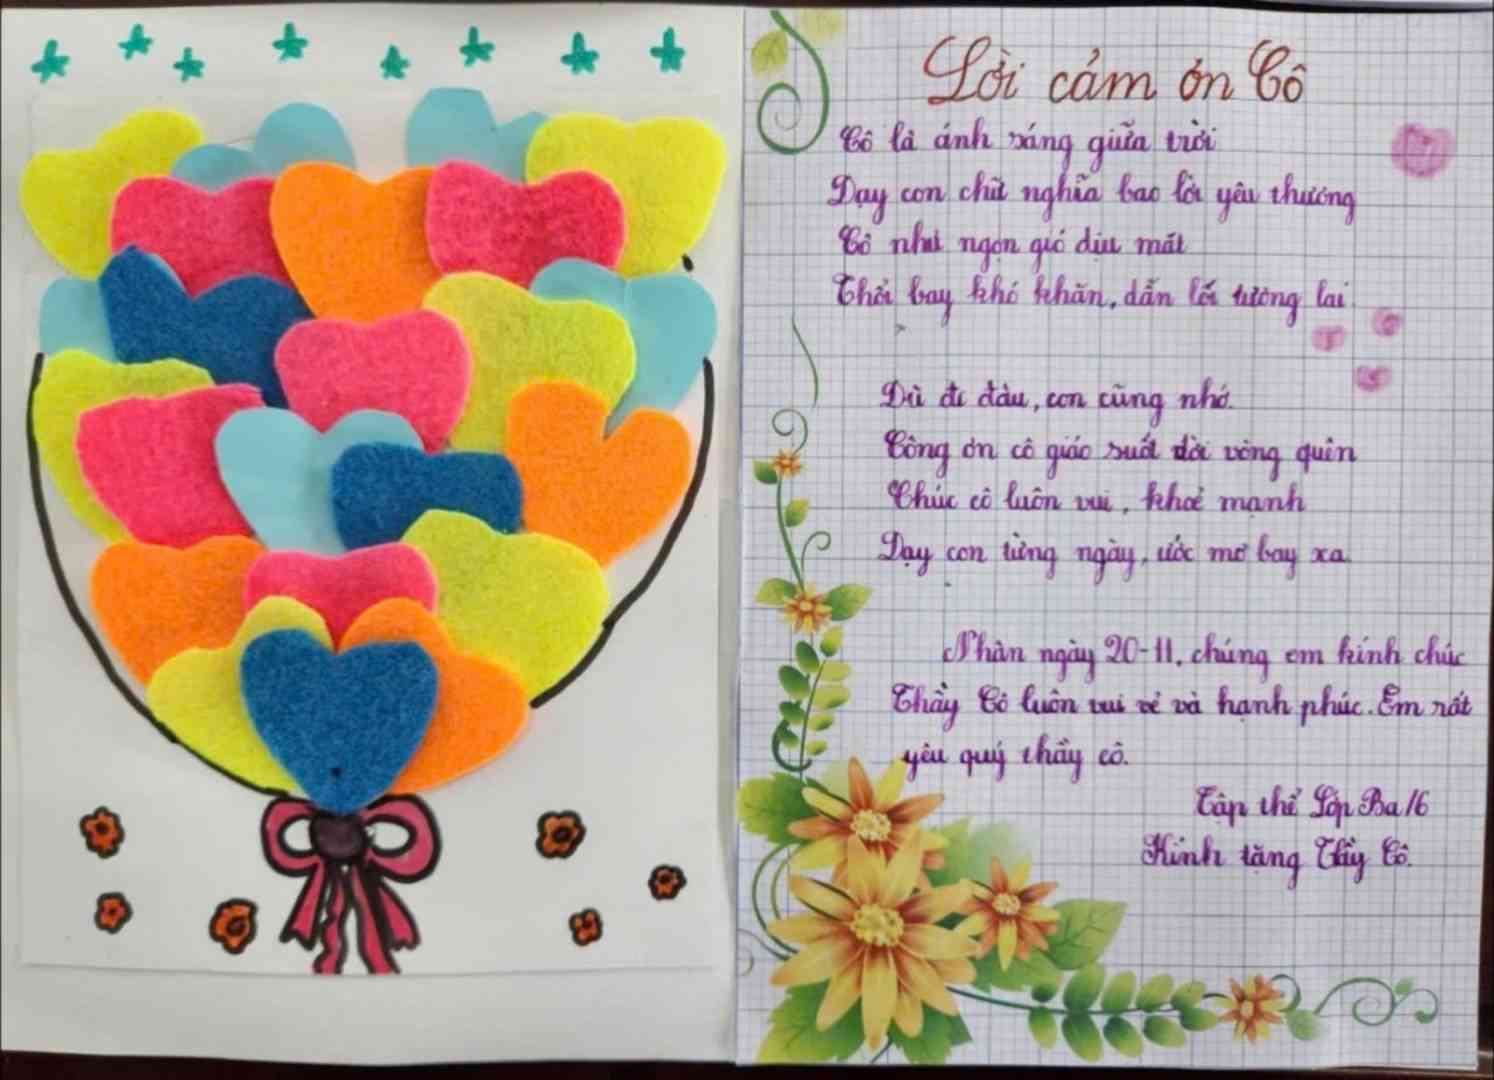 Lời cảm ơn Cô
Cô là ánh sáng giữa trời
Dạy con chữ nghĩa bao lời yêu thương
Cô như ngọn gió dịu mát
Thổi bay khó khăn, dẫn lối tương lai
Dù đi đâu, con cũng nhớ.
Công ơn cô giáo suốt đời vòng quên
Chúc cô luôn vui, khoẻ mạnh
Dạy con từng ngày, ước mơ bay xa
Nhân ngày 20-11, chúng em kính chúc
Thầy Cô luôn vui vẻ và hạnh phúc. Em rất
yêu quý thầy cô.
Tập thể Lớp Ba/6
Kính tặng Thầy Cô.